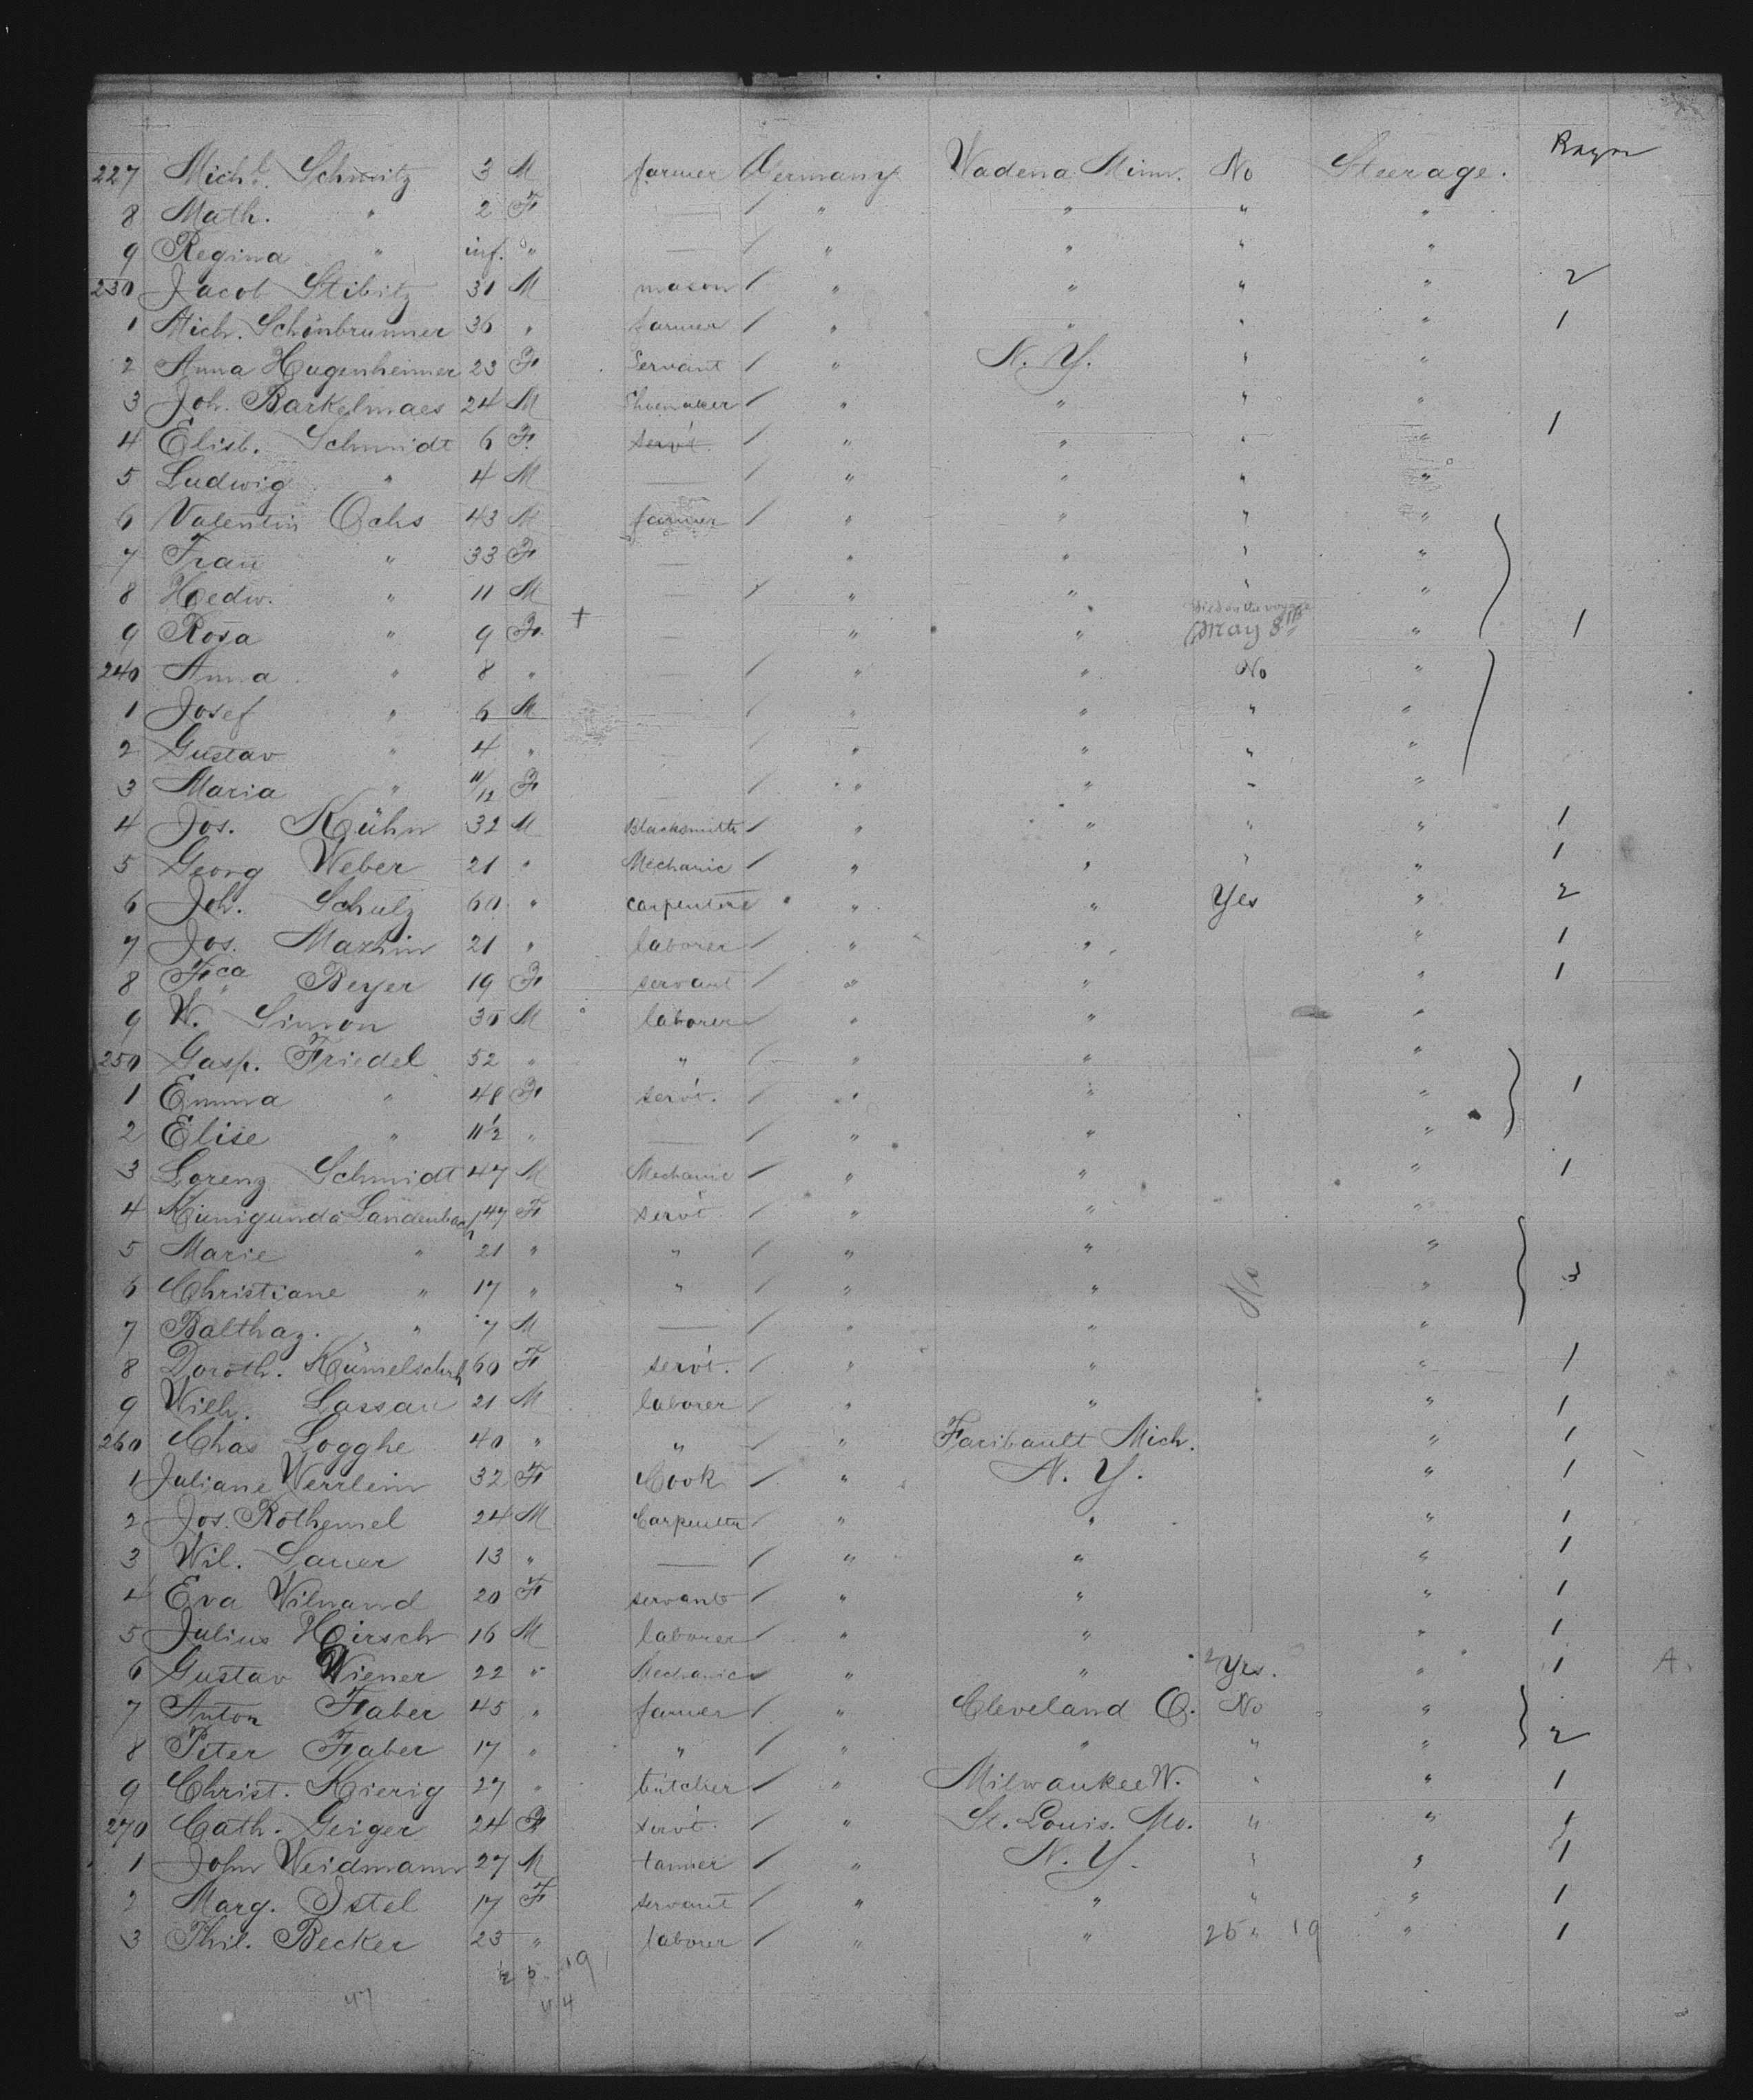 Bagn
227 Michl. Schmitz 3 M farmer Germany Wadena Minn. No Steerage.
8 Math. " 2 F — / " " " "
9 Regina " inf. " — / " " " "
230 Jacob Stibitz 31 M mason / " " " " 2
1 Mich. Schönbrunner 36 " farmer / " " " " 1
2 Anna Hugenheimer 23 F Servant / " N. Y. " "
3 Joh. Barkelmaes 24 M Shoemaker / " " " "
4 Elisb. Schmidt 6 F. servt. / " " " " 1
5 Ludwig " 4 M — / " " " "
6 Valentin Ochs 43 M farmer / " " " "
7 Frau " 33 F — " " " "
8 Hedw. " 11 M / " " " "
9 Rosa " 9 F. + " " Died on the voyage May 8th " 1
240 Anna " 8 " — / " " No "
1 Josef " 6 M — / " " " "
2 Gustav " 4 " " " " "
3 Maria " 11/12 F — / " " " "
4 Jos. Kühn 32 M Blacksmith / " " " " 1
5 Georg Weber 21 " Mechanic / " " " " 1
6 Joh. Schulz 60 " carpenter " " Yes " 2
7 Jos. 21 " laborer / " " " 1
8 Fca Beyer 19 F servant / " " " 1
9 W. Simon 30 M laborer / " " "
250 Gasp. Friedel 52 " " / " " "
1 Emma " 48 F servt. / " " " 1
2 Elise " 11 1/2 " — / " " "
3 Lorenz Schmidt 47 M Mechanic / " " " 1
4 Kunigunda 47 F servt / " " "
5 Marie " 21 " " / " " "
6 Christiane " 17 " " / " " No " 3
7 Balthaz. " 7 M — / " " "
8 Doroth. 60 F servt. / " " " 1
9 Wilh. Lassau 21 M laborer / " " " 1
260 Chas Logghe 40 " " / " Faribault Mich. " 1
1 Juliane Werrlein 32 F Cook / " N. Y. " 1
2 Jos. Rothemel 24 M Carpenter / " " " 1
3 Wil. Sauer 13 " — / " " " 1
4 Eva Wilnand 20 F servant / " " " 1
5 Julius Hirsch 16 M laborer / " " " 1
6 Gustav Wiener 22 " Mechanic / " " Yes. " 1 A.
7 Anton Faber 45 " farmer / " Cleveland O. No "
8 Peter Faber 17 " " / " " " " 2
9 Christ. Kierig 27 " butcher / " Milwaukee W. " " 1
270 Cath. Geiger 24 F servt. / " St. Louis. Mo. " " 1
1 John Weidmann 27 M tanner / " N. Y. " " 1
2 Marg. Istel 17 F servant / " " " " 1
3 Phil. Becker 23 " laborer / " " 25 " 19 " 1
47